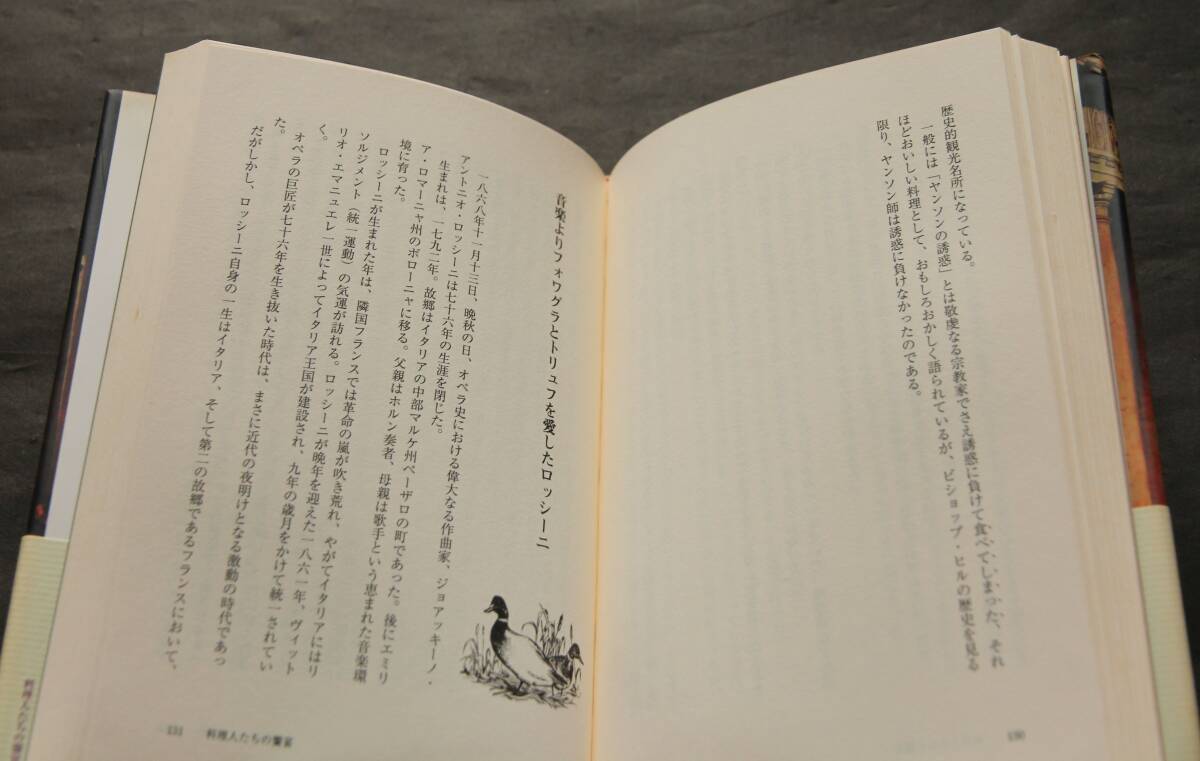 歴史的観光名所になっている。
一般には「ヤンソンの誘惑」とは敬虔なる宗教家でさえ誘惑に負けて食べてしまった、それ
ほどおいしい料理として、おもしろおかしく語られているが、ビショップ・ヒルの歴史を見る
限り、ヤンソン師は誘惑に負けなかったのである。
130
音楽よりフォワグラとトリュフを愛したロッシーニ
一八六八年十一月十三日、晩秋の日、オペラ史における偉大なる作曲家、ジョアッキーノ・
アントニオ・ロッシーニは七十六年の生涯を閉じた。
生まれは、一七九二年。故郷はイタリアの中部マルケ州ペーザロの町であった。後にエミリ
ア・ロマーニャ州のボローニャに移る。父親はホルン奏者、母親は歌手という恵まれた音楽環
境に育った。
ロッシーニが生まれた年は、隣国フランスでは革命の嵐が吹き荒れ、やがてイタリアにはリ
ソルジメント（統一運動）の気運が訪れる。ロッシーニが晩年を迎えた一八六一年、ヴィット
リオ・エマニュエレ一世によってイタリア王国が建設され、九年の歳月をかけて統一されてい
く。
オペラの巨匠が七十六年を生き抜いた時代は、まさに近代の夜明けとなる激動の時代であっ
た。
だがしかし、ロッシーニ自身の一生はイタリア、そして第二の故郷であるフランスにおいて、
131 料理人たちの饗宴